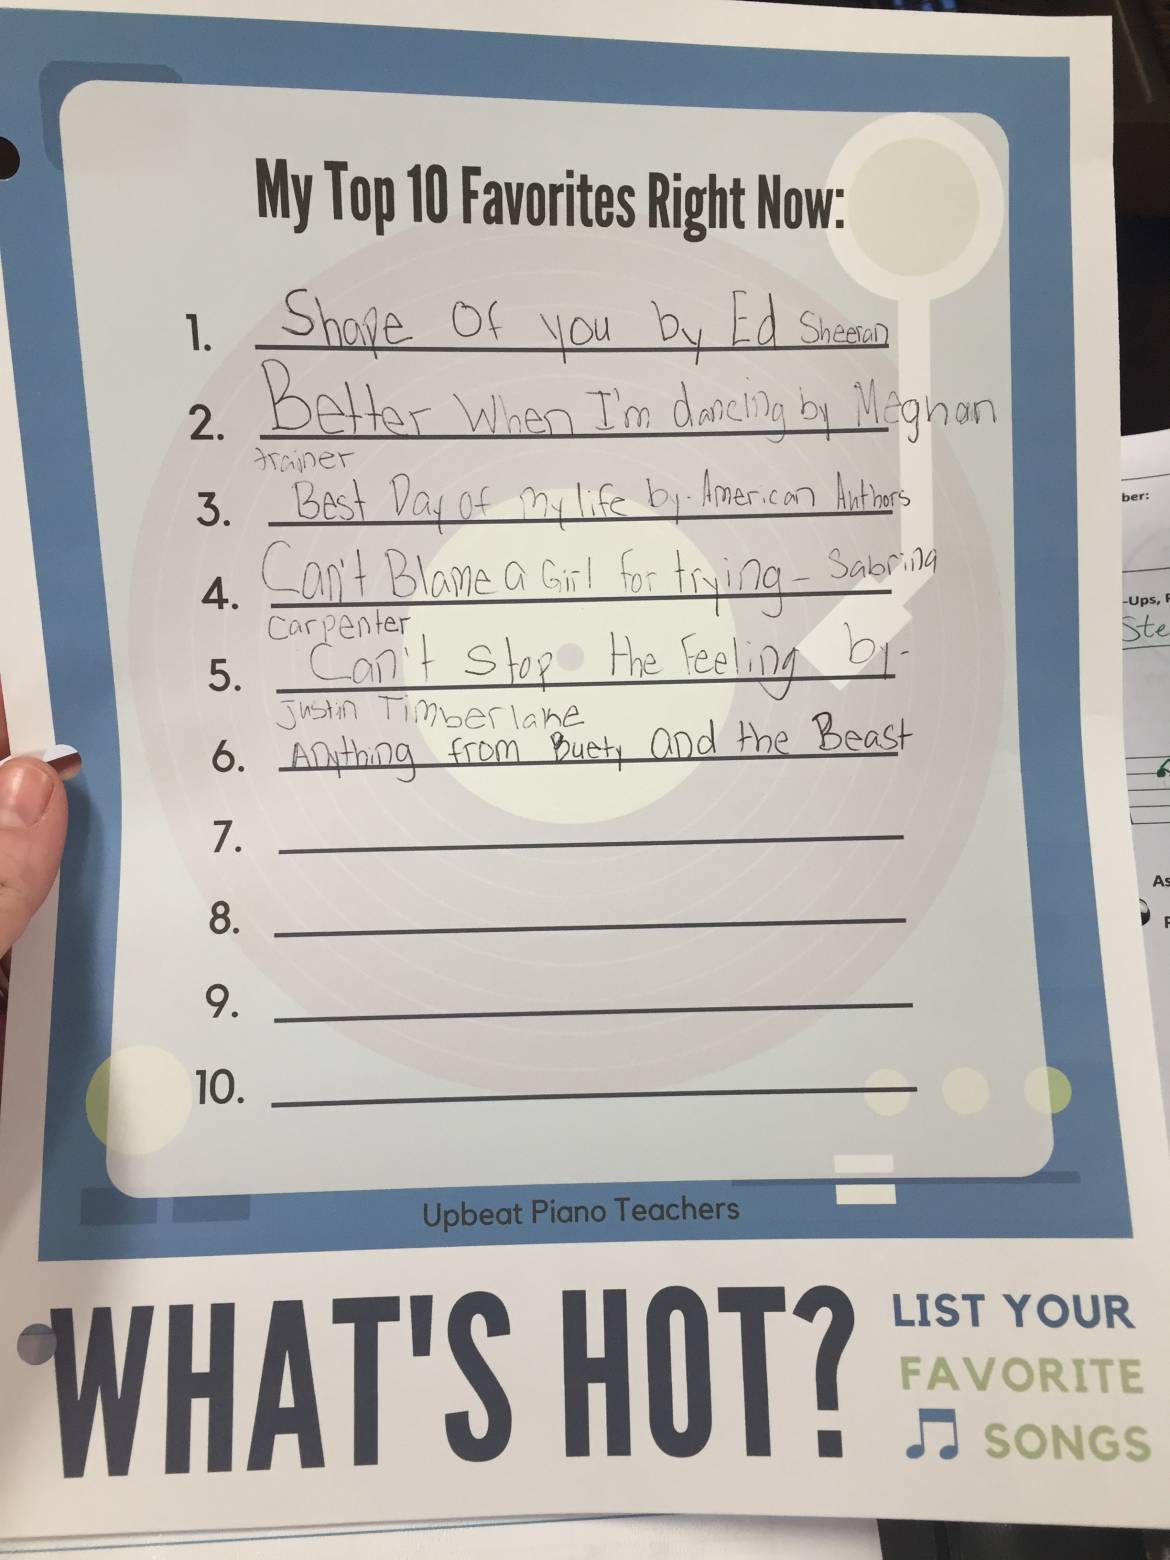 My Top 10 Favorites Right Now:
1. Shape Of you by Ed Sheeran
2. Better When I'm dancing by Meghan
trainer
3. Best Day of my life by. American Authors
4. Can't Blame a Girl for trying - Sabrina
Carpenter
5. Can't Stop the Feeling by-
Justin Timberlake
6. Anything from Buety and the Beast
7.
8.
9.
10.
Upbeat Piano Teachers
WHAT'S HOT?
LIST YOUR
FAVORITE
SONGS
ber:
-Ups,
Ste
As